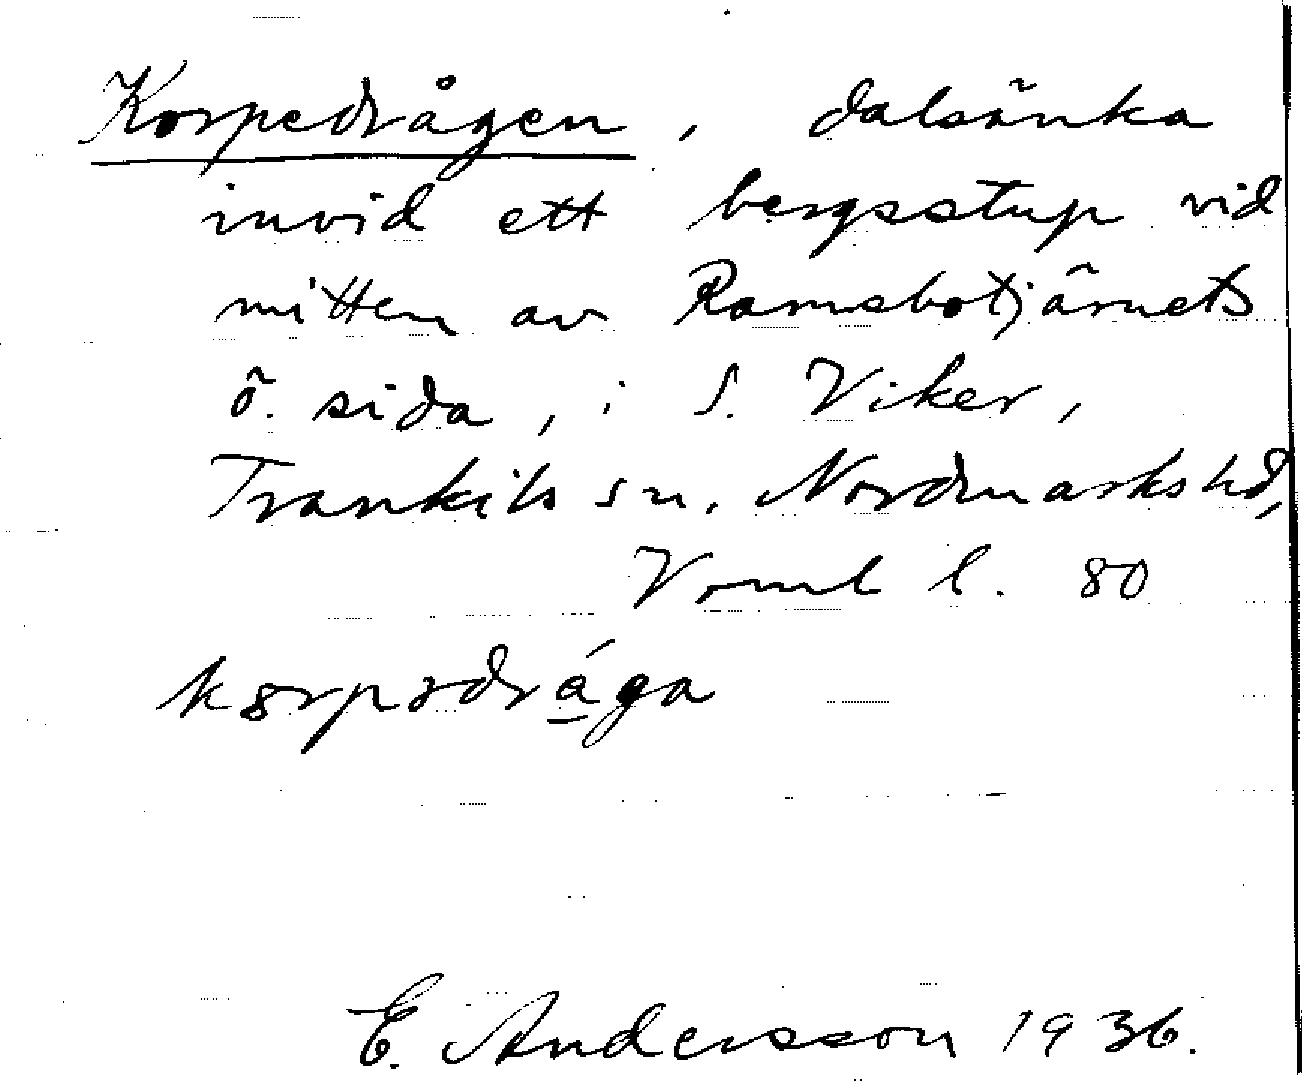 Korpedrågen, dalsänka
invid ett bergsstup vid
mitten av Ramsbotjärnets
ö. sida, i S. Viker,
Trankils sn, Nordmarks hd,
Vrml l. 80
E. Andersson 1936.